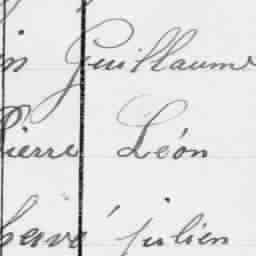 Guillaume
Pierre Léon
hervé julien